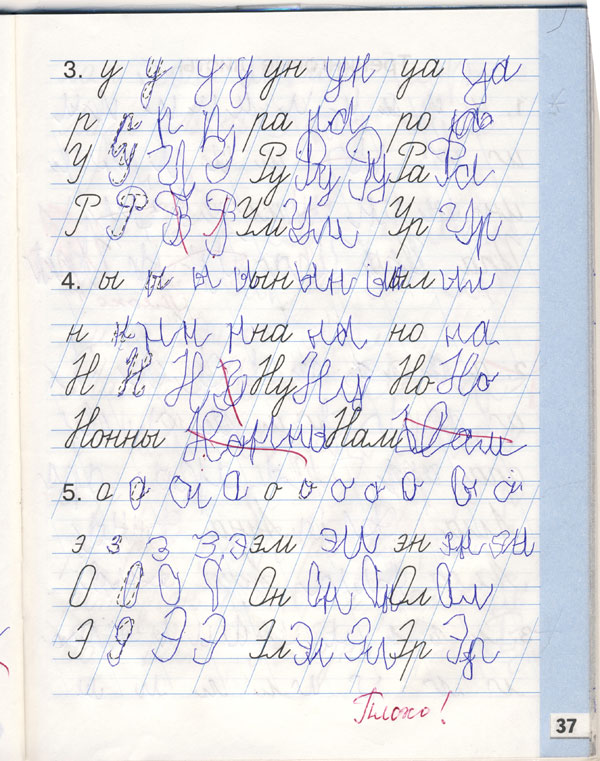 3. у у у у ун ун уа уа
р р р р ра ра ро ра
У У У У Ру Ру Ру Ра Ра
Р Р Р Р Ум Ум Ур Ур
4. ы ы ы ы ын ын ын ыл ыл
н н н н н на на но на
Н Н Н Ну Ну Но Но
Нонны Нонны Нам Нам
5. о о о о о о о о о
э э э э э эм эм эн эн эн
О О О О Он Он Он Ол Ол
Э Э Э Э Эл Эл Эл Эр Эр
Плохо!
37